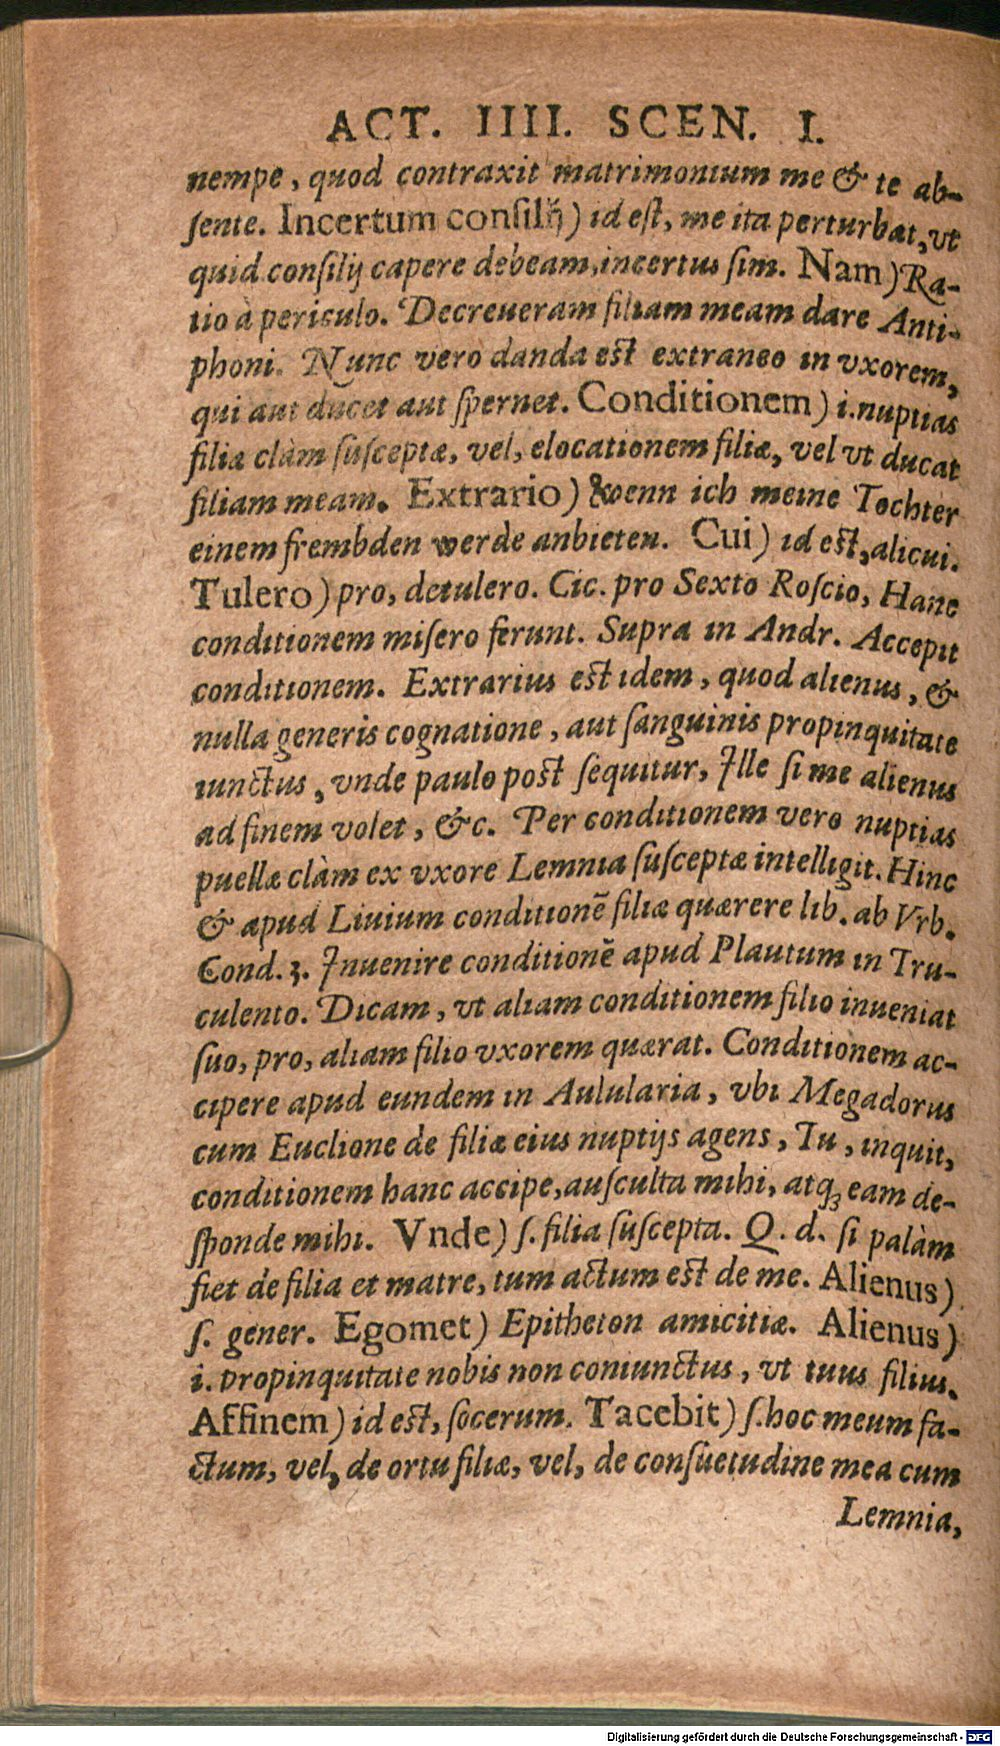 ACT. IIII. SCEN. I.
nempe, quod contraxit matrimonium me & te ab-
ſente. Incertum conſilij) id eſt, me ita perturbat, vt
quid conſilij capere debeam, incertus ſim. Nam) Ra-
tio à periculo. Decreueram filiam meam dare Anti-
phoni. Nunc vero danda eſt extraneo in vxorem,
qui aut ducet aut ſpernet. Conditionem) i. nuptias
filiæ clàm ſuſceptæ, vel, elocationem filiæ, vel vt ducat
filiam meam. Extrario) Wenn ich meine Tochter
einem frembden werde anbieten. Cui) id eſt, alicui.
Tulero) pro, detulero. Cic. pro Sexto Roſcio, Hanc
conditionem miſero ferunt. Supra in Andr. Accepit
conditionem. Extrarius eſt idem, quod alienus, &
nulla generis cognatione, aut ſanguinis propinquitate
iunctus, vnde paulo poſt ſequitur, Ille ſi me alienus
adfinem volet, &c. Per conditionem vero nuptias
puellæ clàm ex vxore Lemnia ſuſceptæ intelligit. Hinc
& apud Liuium conditionẽ filiæ quærere lib. ab Vrb.
Cond. 3. Inuenire conditionẽ apud Plautum in Tru-
culento. Dicam, vt aliam conditionem filio inueniat
ſuo, pro, aliam filio vxorem quærat. Conditionem ac-
cipere apud eundem in Aulularia, vbi Megadorus
cum Euclione de filiæ eius nuptijs agens, Tu, inquit,
conditionem hanc accipe, auſculta mihi, atq; eam de-
ſponde mihi. Vnde) ſ. filia ſuſcepta. Q. d. ſi palàm
fiet de filia et matre, tum actum eſt de me. Alienus)
ſ. gener. Egomet) Epitheton amicitiæ. Alienus)
i. propinquitate nobis non coniunctus, vt tuus filius.
Affinem) id eſt, ſocerum. Tacebit) ſ. hoc meum fa-
ctum, vel, de ortu filiæ, vel, de conſuetudine mea cum
Lemnia,
Digitalisierung gefördert durch die Deutsche Forschungsgemeinschaft - DFG